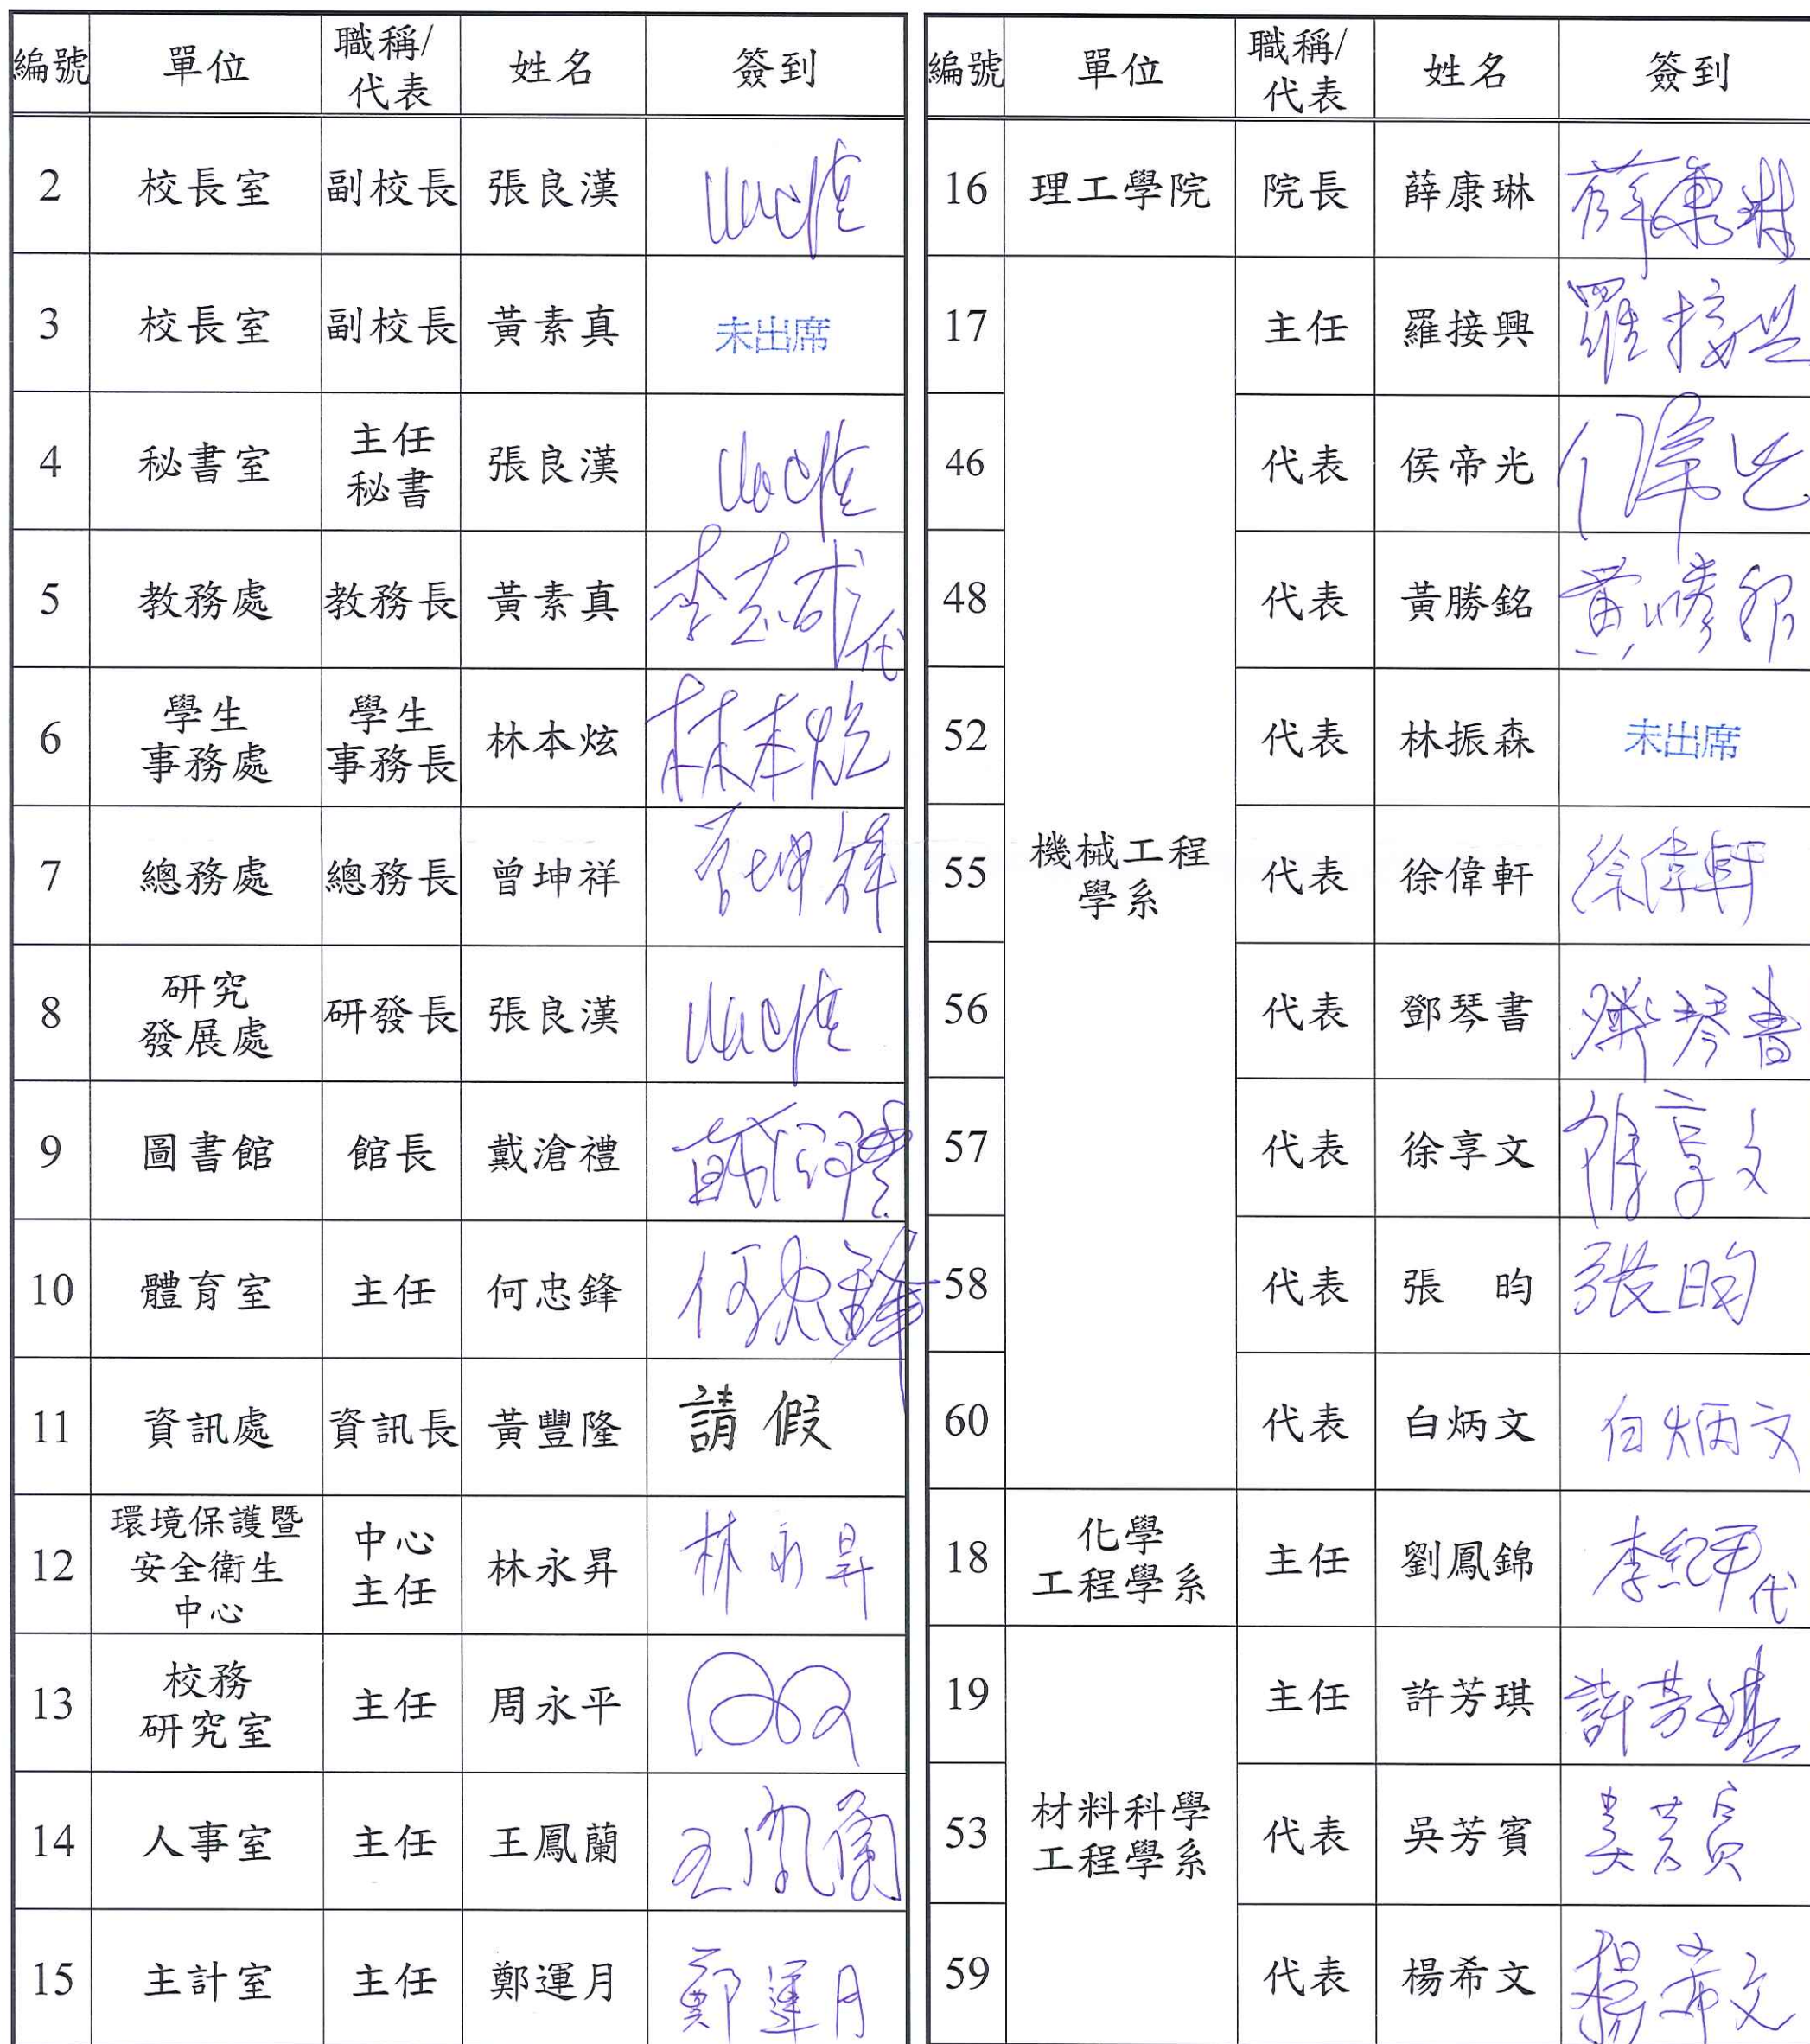 編號 單位 職稱/代表 姓名 簽到
2 校長室 副校長 張良漢
3 校長室 副校長 黃素真 未出席
4 秘書室 主任秘書 張良漢
5 教務處 教務長 黃素真 代
6 學生事務處 學生事務長 林本炫 林本炫
7 總務處 總務長 曾坤祥 曾坤祥
8 研究發展處 研發長 張良漢
9 圖書館 館長 戴滄禮 戴滄禮
10 體育室 主任 何忠鋒 何忠鋒
11 資訊處 資訊長 黃豐隆 請假
12 環境保護暨安全衛生中心 中心主任 林永昇 林永昇
13 校務研究室 主任 周永平
14 人事室 主任 王鳳蘭 王鳳蘭
15 主計室 主任 鄭運月 鄭運月
編號 單位 職稱/代表 姓名 簽到
16 理工學院 院長 薛康琳 薛康琳
17 機械工程學系 主任 羅接興 羅接興
46 代表 侯帝光
48 代表 黃勝銘 黃勝銘
52 代表 林振森 未出席
55 代表 徐偉軒 徐偉軒
56 代表 鄧琴書 鄧琴書
57 代表 徐享文 徐享文
58 代表 張 昀 張昀
60 代表 白炳文 白炳文
18 化學工程學系 主任 劉鳳錦 代
19 材料科學工程學系 主任 許芳琪 許芳琪
53 代表 吳芳賓 吳芳賓
59 代表 楊希文 楊希文